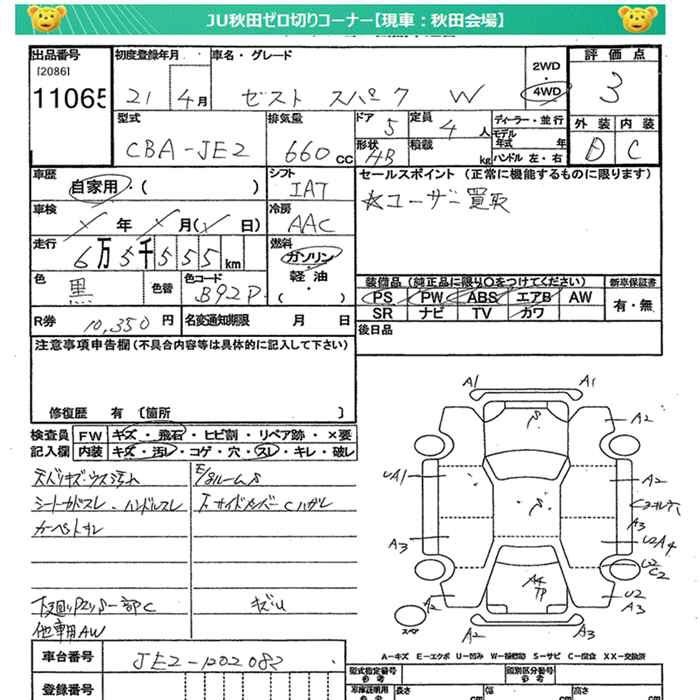 JU秋田ゼロ切りコーナー【現車：秋田会場】
出品番号 初度登録年月 車名・グレード 2WD 4WD 評価点
[2086]
11065 21 4月 ゼスト スパーク W 3
型式 排気量 ドア 定員 ディーラー・並行 外装 内装
CBA-JE2 660cc 5 4人 モデル年式 年 D C
形状 積載 kg ハンドル 左・右
HB
車歴 シフト セールスポイント（正常に機能するものに限ります）
自家用・（ ） IAT ☆ユーザー買取
車検 冷房
年 月( 日) AAC
走行 燃料
6万5千555km ガソリン・軽油・( )
色 色替 色コード 装備品（純正品に限り○をつけてください） 新車保証書
黒 B92P PS PW ABS エアB AW 有・無
SR ナビ TV カワ
R券 10,350円 名変通知期限 月 日 後日品
注意事項申告欄（不具合内容等は具体的に記入して下さい）
修復歴 有 〔箇所 〕
検査員 FW キズ・飛石・ヒビ割・リペア跡・×要
記入欄 内装 キズ・汚レ・コゲ・穴・スレ・キレ・破レ
シートカドスレ、ハンドルスレ
下サイドメンバーCハガレ
他車用AW
A1 A1
A2
UA1 A2
A3 A3
UA4
U2
C2
A4
TP
A2 U2
A3
A2 A3
スペア
A-キズ E-エクボ U-凹み W-補修跡 S-サビ C-腐食 XX-交換済
車台番号 JE2-1002083
登録番号
型式指定番号 参考 類別区分番号 参考
車庫証明用 参考 長さ cm 幅 cm 高さ cm